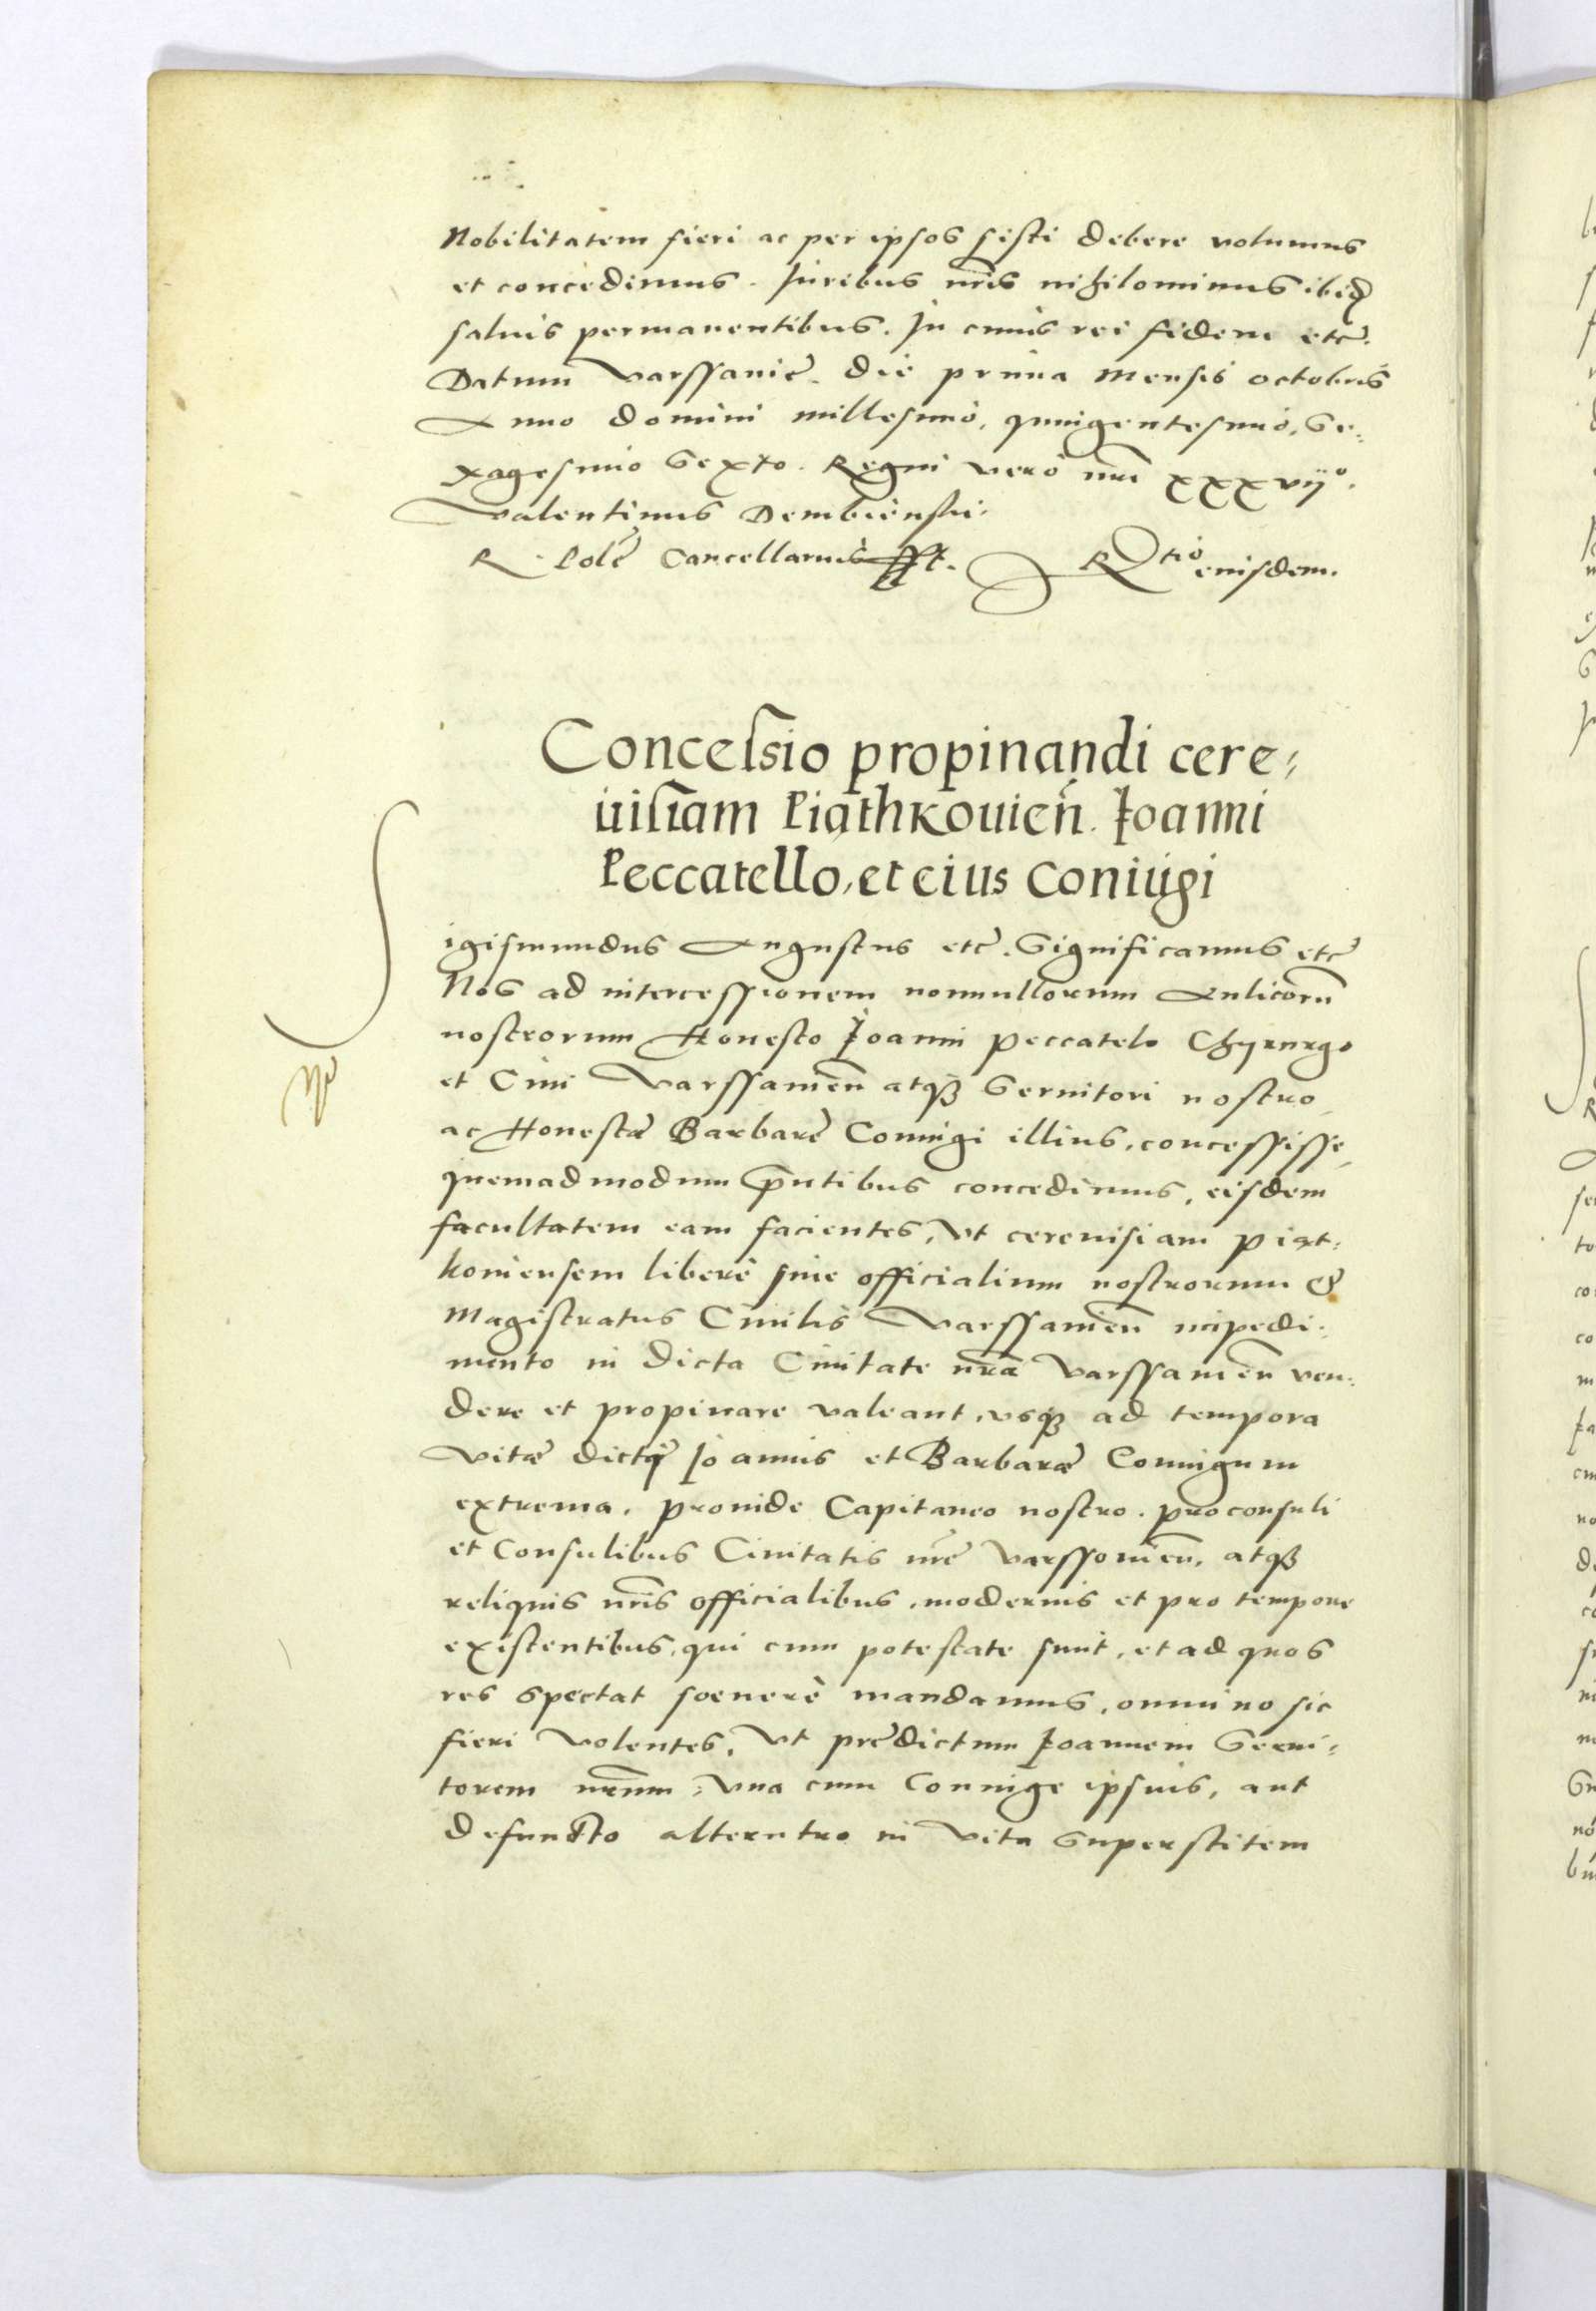 Nobilitatem fieri ac per ipsos sisti debere volumus
et concedimus. Juribus nr̃is nihilominus ibid̃
saluis permanentibus. In cuius rei fidem etc̃.
Datum Varssauiæ. die prima Mensis octobris
Anno domini millesimo, quingentesimo, Se:
xagesimo Sexto. Regni vero nr̃i XXXVIIº.
Valentinus Dembienski
R. Polæ Cancellarius sst. Rtio eiusdem.
Concessio propinandi cere:
uisiam Piąthkouień. Joanni
Peccatello, et eius Coniugi
Sigismundus Augustus etc̃. Significamus etc̃
Nos ad intercessionem nonnullorum Aulicorũ
nostrorum Honesto Joanni Peccatelo Chyrurgo
et Ciui Varssauień atqȝ Seruitori nostro
ac Honestæ Barbaræ Coniugi illius, concessisse,
quemadmodum p̃ntibus concedimus, eisdem
facultatem eam facientes, Vt cereuisiam Piąt:
kouiensem liberè siue officialium nostrorum &
Magistratus Ciuilis Varssauień impedi:
mento in dicta Ciuitate nr̃a Varssauień ven:
dere et propinare valeant, vsqȝ ad tempora
vitæ dictor̃ Joannis et Barbaræ Coniugum
extrema. Prouide Capitaneo nostro. proconsuli
et Consulibus Ciuitatis nr̃e Varssouień, atqȝ
reliquis nr̃is officialibus, modernis et pro tempore
existentibus, qui cum potestate sunt, et ad quos
res spectat soenerè mandamus, omnino sic
fieri volentes, Vt prædictum Joannem Serui:
torem nr̃um, vna cum Coniuge ipsius, aut
defuncto alterutro in vita Superstitem